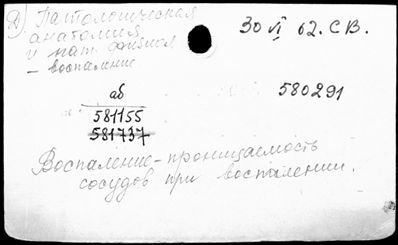 Д) Патологическая
анатомия
и пат. физиол
- воспаление
30 VI 62. С В.
аб
581155
581737
580291
Воспаление - проницаемость
сосудов при воспалении.